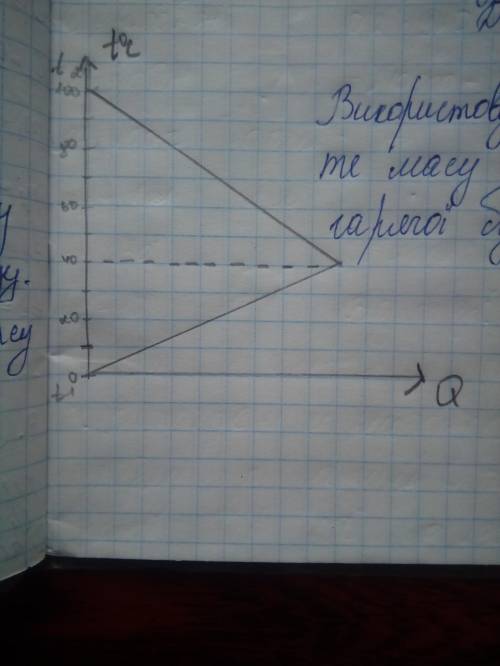 t°C
t 2
100
80
60
40
20
0
t1
Q
Використову
те масу
гарячої
у
ку.
су